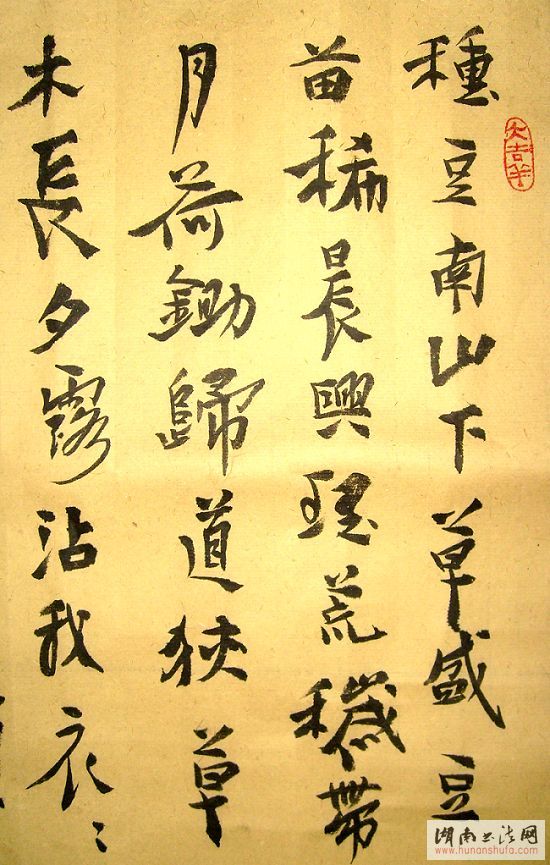 種豆南山下草盛豆
苗稀晨興理荒穢帶
月荷鋤歸道狹草
木長夕露沾我衣〻
大吉羊
湖南书法网
www.hunanshufa.com